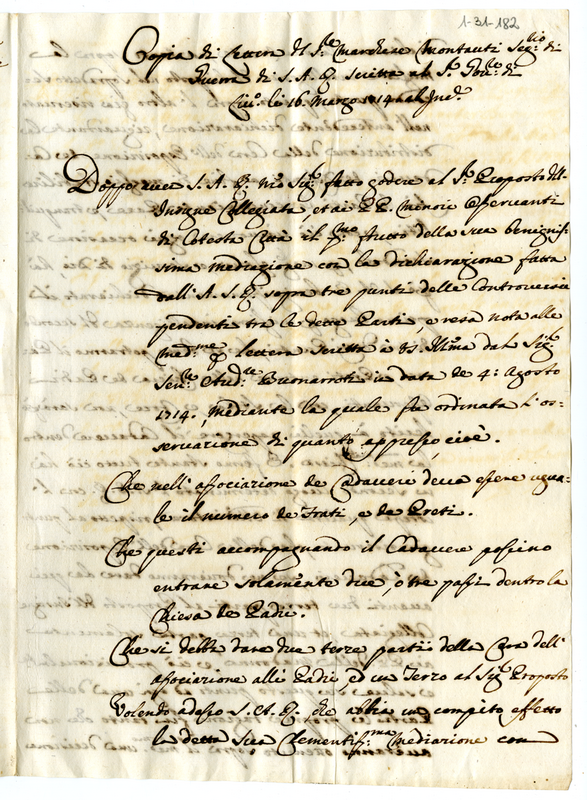 1-31-182
Copia di Lettera del S.re Marchese Montauti Seg.rio di
Guerra di S. A. R. scritta al S.r Gov.re di
Liv.o li 16. Marzo 1714 ab Inc.
Doppo aver S. A. R. n̄ro Sig.re fatto godere al S.r Proposto dell'
Insigne Collegiata et ai PP. Minori Osservanti
di Cotesta Città il p̄mo frutto della sua benignis-
sima mediazione con la dichiarazione fatta
dall' A. S. R. sopra tre punti delle Controversie
pendenti tra le dette Parti, e resa nota alle
med.me p lettera scritta à VS. Ill̄ma dal Sig.r
Sen.re Aud.re Buonarroti in data de 4: Agosto
1714., mediante la quale fu ordinata l'os-
servazione di quanto appresso cioè.
Che nell' associazione de Cadaveri deva essere ugua-
le il numero de Frati, e de Preti.
Che questi accompagnando il Cadavere possino
entrare solamente due, ò tre passi dentro la
Chiesa de Padri.
Che si debba dare due terze parti della Cera dell'
associazione alli Padri, ed un Terzo al Sig.r Proposto
Volendo adesso S. A. R., che abbia un compito effetto
la detta sua Clementiss.ma Mediazione con